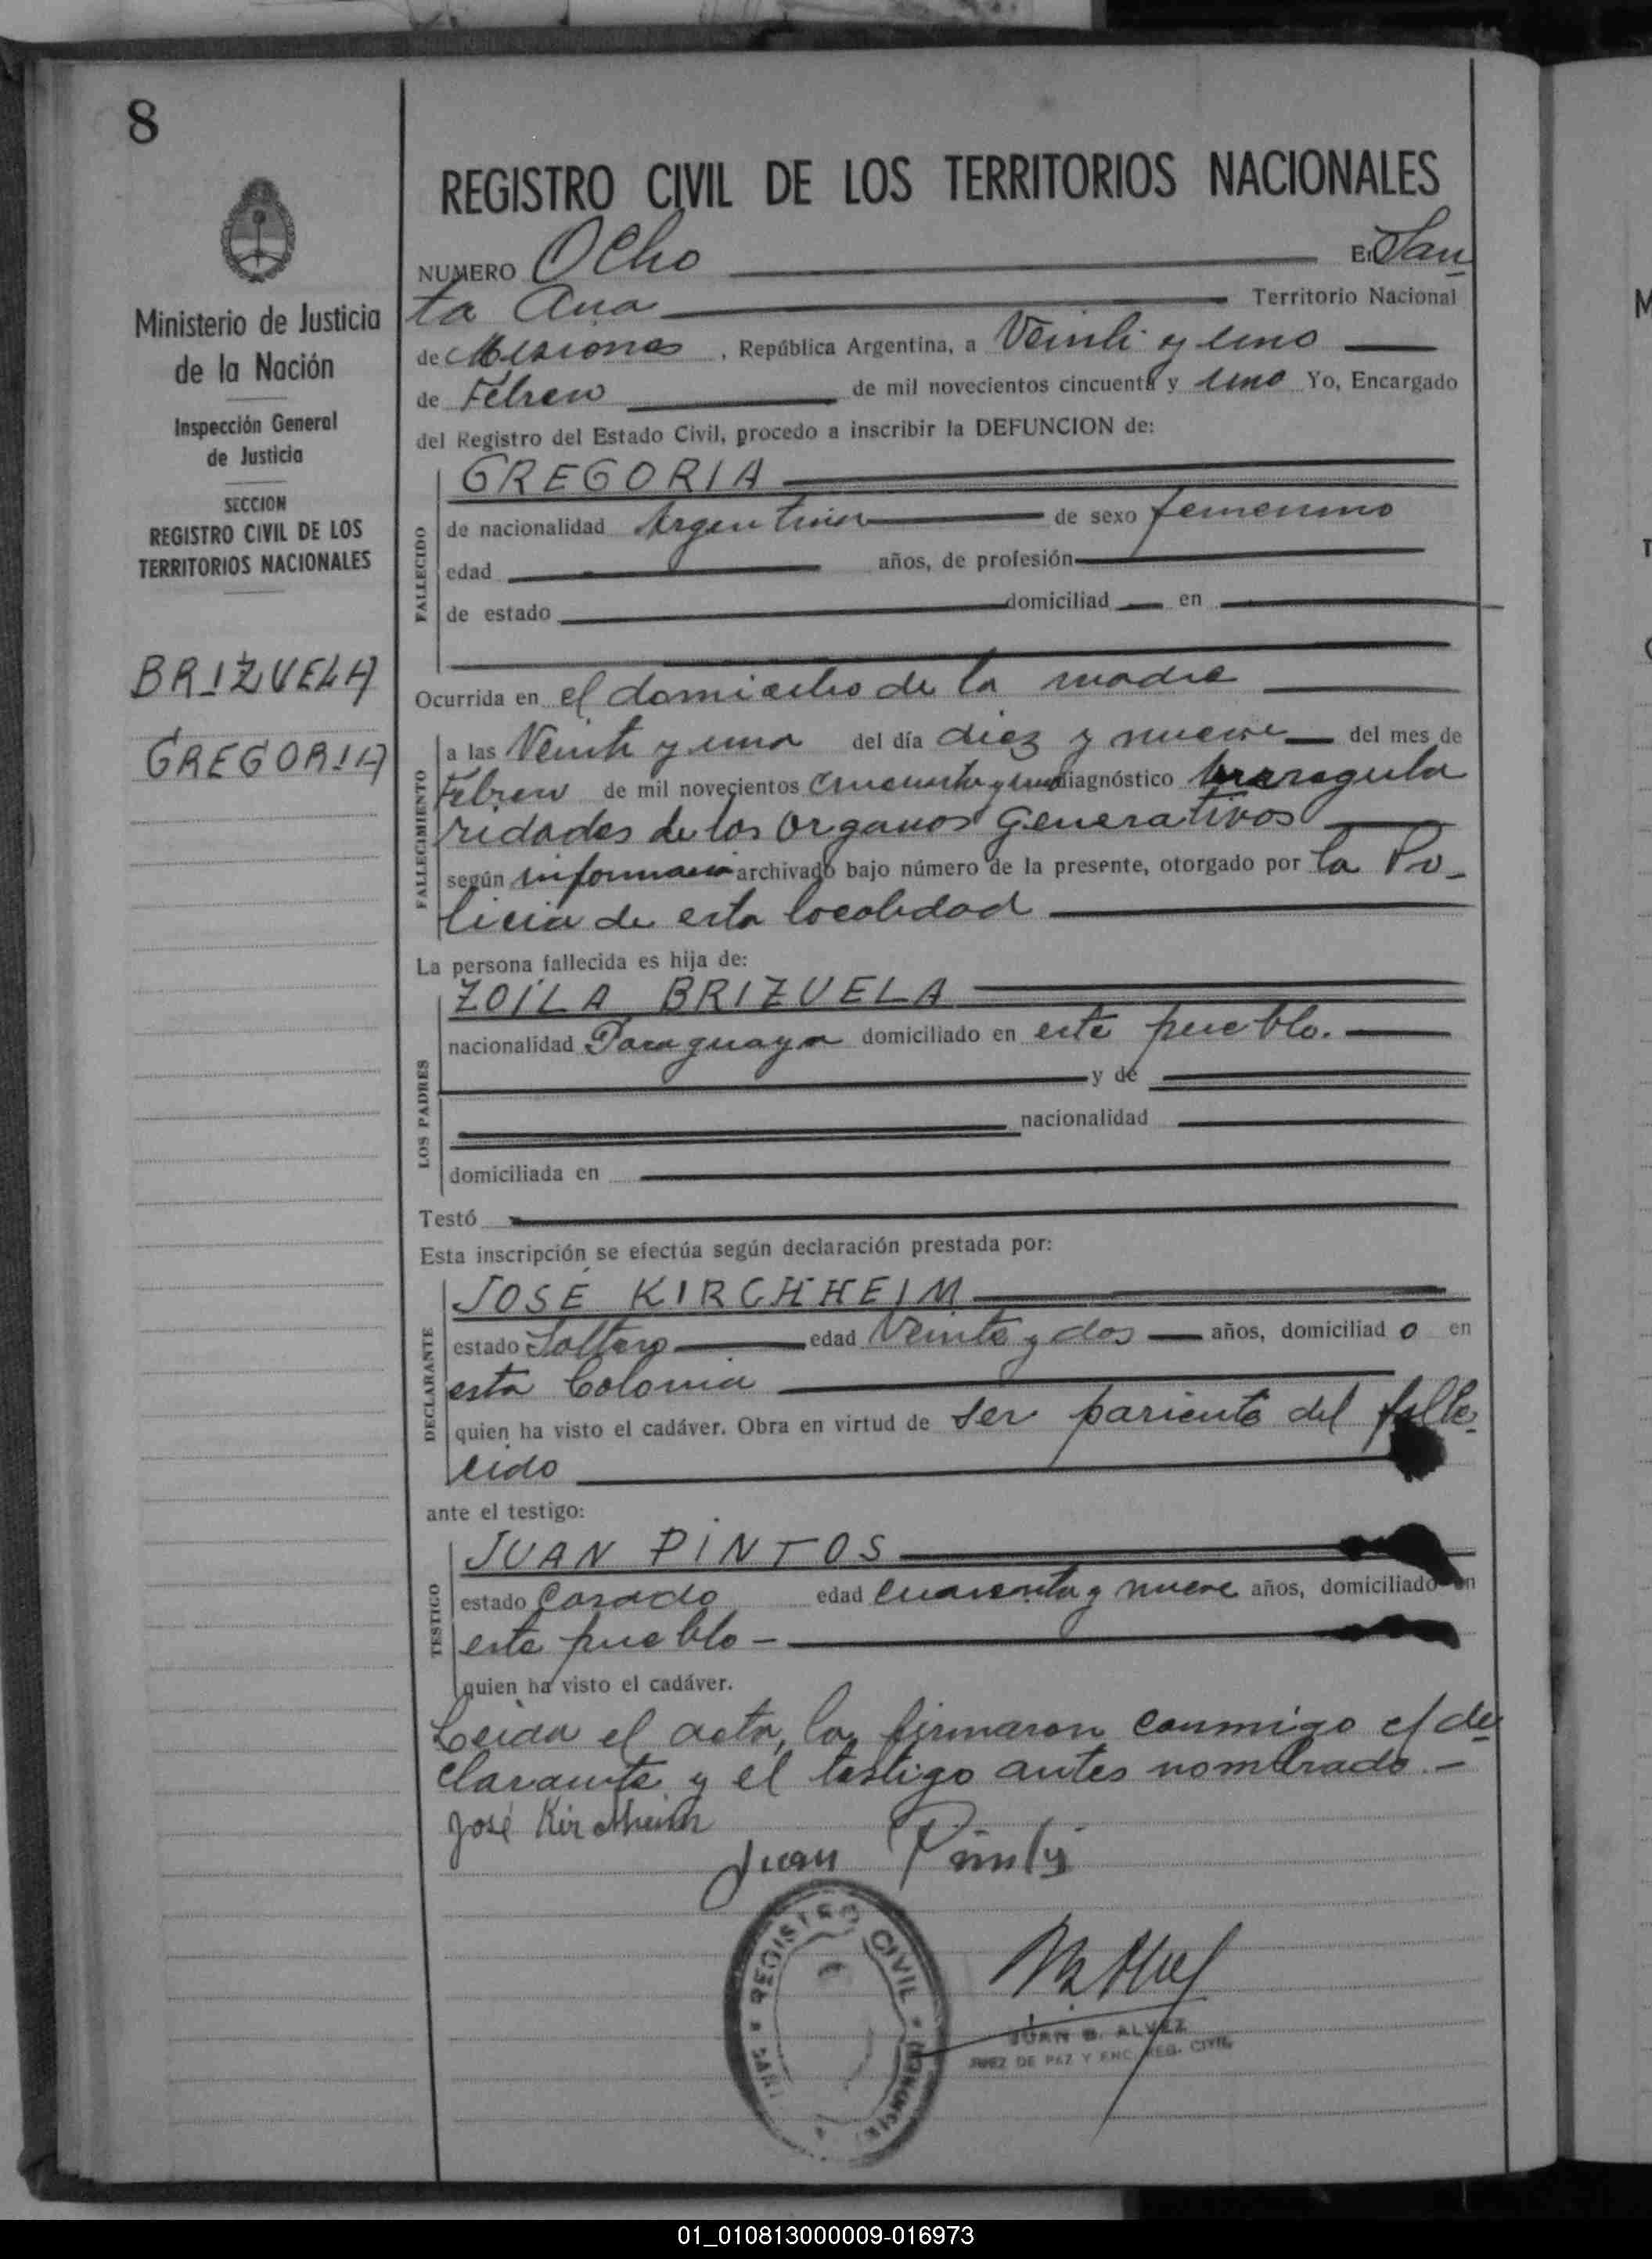 8
REGISTRO CIVIL DE LOS TERRITORIOS NACIONALES
NUMERO Ocho En San
ta Ana Territorio Nacional
de Misiones, República Argentina, a Veinti y uno
de Febrero de mil novecientos cincuenta y uno Yo, Encargado
del Registro del Estado Civil, procedo a inscribir la DEFUNCION de:
Ministerio de Justicia
de la Nación
Inspección General
de Justicia
SECCION
REGISTRO CIVIL DE LOS
TERRITORIOS NACIONALES
BRIZUELA
GREGORIA
FALLECIDO
GREGORIA
de nacionalidad Argentina de sexo femenino
edad años, de profesión
de estado domiciliad en
Ocurrida en el domicilio de la madre
FALLECIMIENTO
a las Veinte y una del día diez y nueve del mes de
Febrero de mil novecientos cincuenta y uno diagnóstico
ridades de los Organos Generativos
según archivado bajo número de la presente, otorgado por la Po-
licia de esta localidad
La persona fallecida es hija de:
LOS PADRES
ZOILA BRIZUELA
nacionalidad Paraguaya domiciliado en este pueblo.
y de
nacionalidad
domiciliada en
Testó
Esta inscripción se efectúa según declaración prestada por:
DECLARANTE
JOSÉ KIRCHHEIM
estado Soltero edad Veinte y dos años, domiciliad o en
esta Colonia
quien ha visto el cadáver. Obra en virtud de ser pariente del falle-
cido
ante el testigo:
TESTIGO
JUAN PINTOS
estado Casado edad cuarenta y nueve años, domiciliado en
este pueblo -
quien ha visto el cadáver.
Leida el acta, la firmaron conmigo el de-
clarante y el testigo antes nombrado. -
José Kirchheim
Juan
REGISTRO CIVIL
JUAN B. ALVEZ
JUEZ DE PAZ Y ENC. REG. CIVIL
01_010813000009-016973